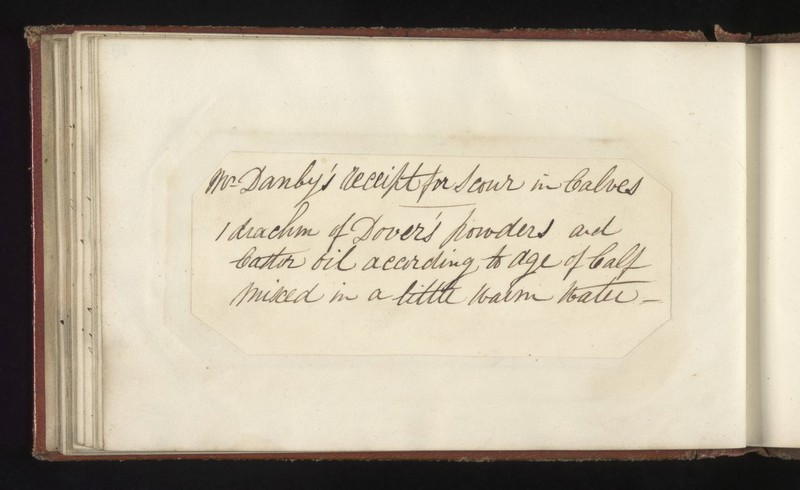 Mr Danby's receipt for Scour in Calves
1 drachm of Dover's powders and
Castor oil according to age of Calf
mixed in a little warm water —